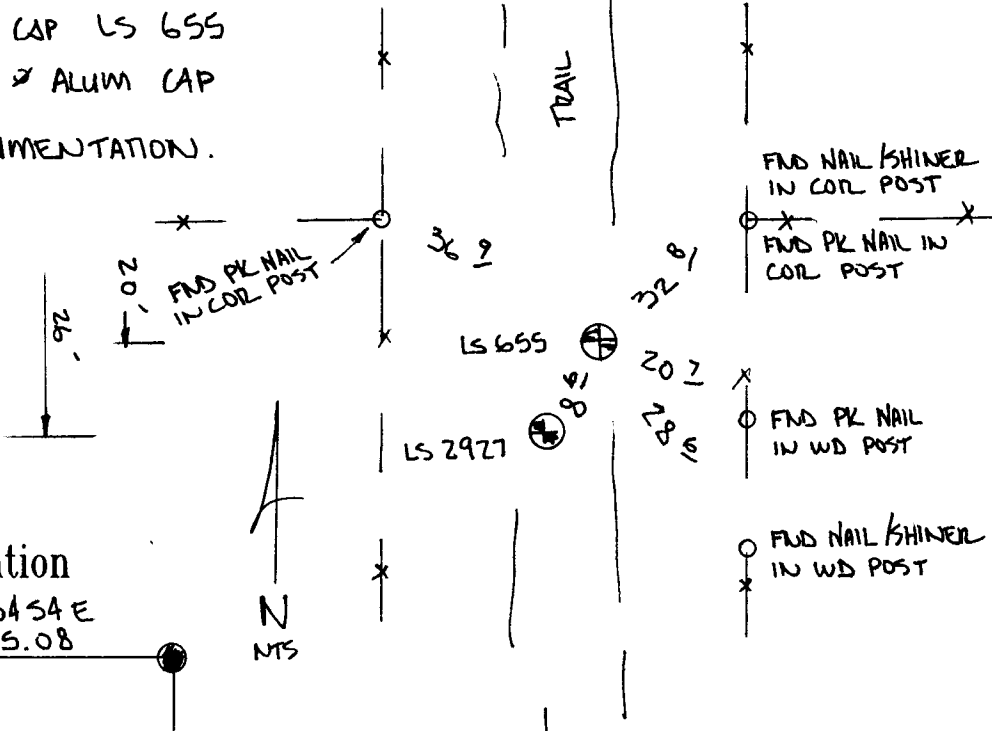 CAP LS 655
ALUM CAP
MENTATION.
TRAIL
FND NAIL/SHINER
IN COR POST
FND PK NAIL IN
COR POST
FND PK NAIL
IN COR POST
36 9
32 8
20'
26'
LS 655
20 7
8
28 5
LS 2927
FND PK NAIL
IN WD POST
FND NAIL/SHINER
IN WD POST
tion
454 E
5.08
N
NTS